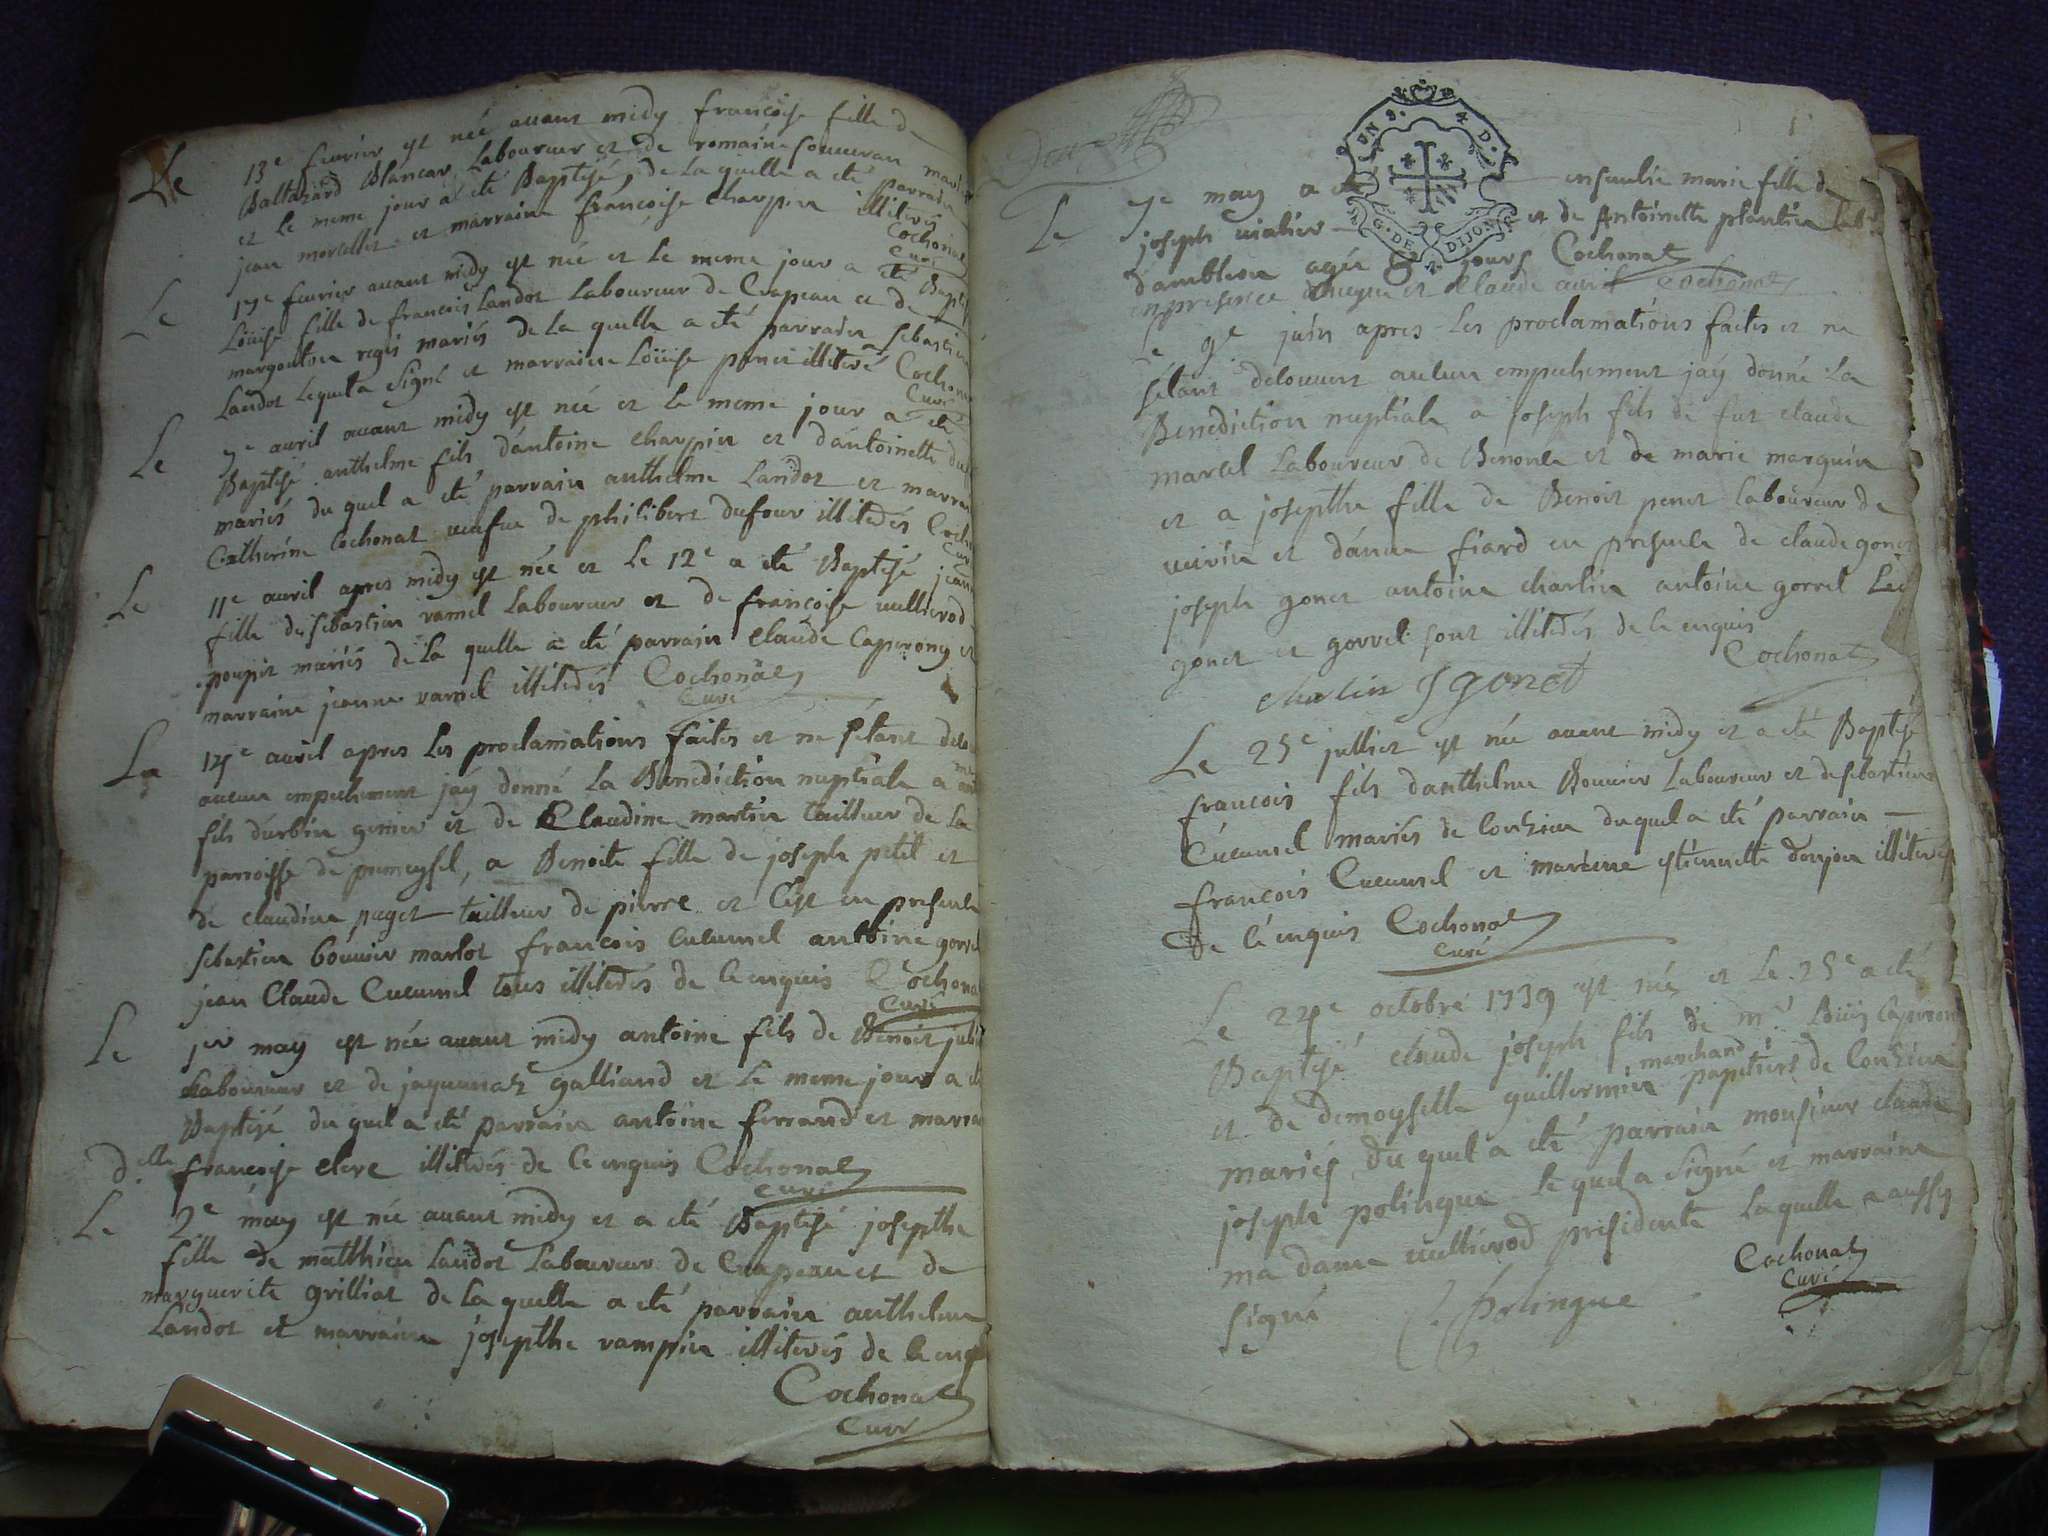 Le 13e fevrier est née avant midy francoise fille de
Baltazard Blancar Laboureur et de romaine souveran mariés
et le meme jour a eté Baptisé, de La quelle a eté parrain
jean morellet et marraine francoise charpin illiterés
Cochonat
Curé
Le 17e fevrier avant midy est née et Le meme jour a eté Bapti
Loüise fille de francois Landot Laboureur de Crapeau et de
margouton regis mariés de La quelle a eté parrain sebastien
Landot Lequel a signé et marraine Loüise ponet illiteré Cochonat
Curé
Le 7e avril avant midy est née et Le meme jour a eté
Baptisé anthelme fils d'antoine charpin et d'antoinette du
mariés du quel a eté parrain anthelme Landot et marrai
Catherine Cochonat veufue de philibert dufour illiterés Coch
Curé
Le 11e avril apres midy est née et Le 12e a eté Baptisé jean
fille de sebastien ramel Laboureur et de francoise vullierod
poupit mariés de La quelle a eté parrain claude Caperony et
marraine jeanne ramel illiterés Cochonat
Curé
La avril apres Les proclamations faites et ne s'étant
aucun empechement jaÿ donné La Benediction nuptiale a
fils d'urbin genier et de Claudine martin tailleur de La
parroisse de premeysel, a Benoite fille de joseph petit et
de claudine puget tailleur de pierre et C'est en presence
sebastien bouvier marlot francois Cucumel antoine gorrel
jean Claude Cucumel tous illiterés de Ce enquis Cochona
Curé
Le jer may est née avant midy antoine fils de Benoit
Laboureur et de jaquemat galliand et Le meme jour a eté
Baptisé du quel a eté parrain antoine ferrand et marra
delle francoise clere illiterés de Ce enquis Cochonat
Curé
Le 2e may est née avant midy et a eté Baptisé josepthe
fille de matthieu Landot Laboureur de Crapeau et de
marguerite grilliat de La quelle a eté parrain anthelme
Landot et marraine josepthe rampin illiterés de Ce enq
Cochonat
Curé
UN S. 4 D.
G. DE DIJON
Le 7e may a eté ensevelie marie fille de
joseph et de Antoinette plantin
d'ambleon agée 8 jours Cochonat
en presence et Claude avril Cochonat
Le 9e juin apres Les proclamations faites et ne
s'étant découvert aucun empechement jaÿ donné La
Benediction nuptiale a joseph fils de fut claude
marcel Laboureur de Benonce et de marie marquin
et a josepthe fille de Benoit penet Laboureur de
et d'anne fiard en presence de claude gonet
joseph gonet antoine charlin antoine gorrel
gonet et gorrel sont illiterés de Ce enquis
Cochonat
charlin J gonet
Le 25e julliet est née avant midy et a eté Baptisé
francois fils d'anthelme Bouvier Laboureur et de sebastiene
Cucumel mariés de Conzieu duquel a eté parrain
francois Cucumel et marraine etiennette donjon illiterés
de Cé enquis Cochonat
Curé
Le 22e octobre 1739 est née et Le 25e a eté
Baptisé claude joseph fils de mr Loüis Caperony
et de demoyselle guillermin marchand papetiers de Conzieu
mariés du quel a eté parrain monsieur claude
joseph polingue Le quel a signé et marraine
ma dame vullierod presidente La quelle a aussy
signé C. J. Polingue
Cochonat
Curé
Le